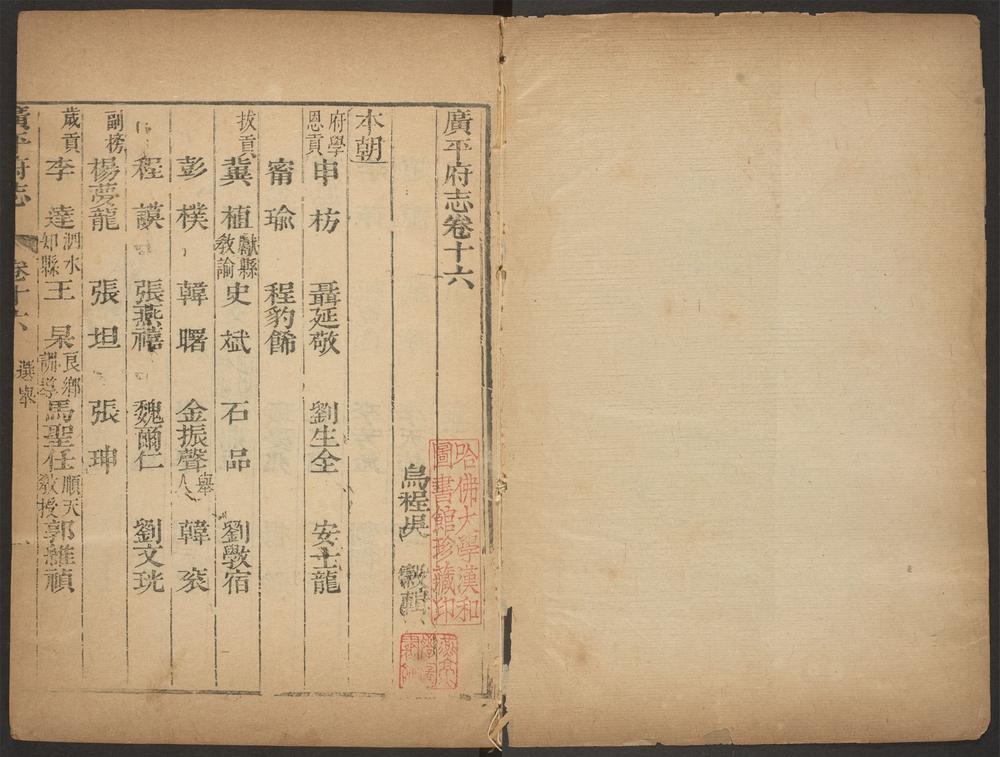 廣平府志卷十六
烏程吳 輯
本朝
府學恩貢 申枋 聶延敬 劉生全 安士龍
甯瑜 程豹飾
拔貢 冀植 獻縣教諭 史斌 石品 劉斆宿
彭樸 韓曙 金振聲 舉人 韓衮
程謨 張燕禧 魏爾仁 劉文珖
副榜 楊夢龍 張坦 張珅
歲貢 李達 泗水知縣 王杲 良鄉訓導 馬聖任 順天教授 郭維禎
廣平府志 卷十六 選舉 一
哈佛大學漢和圖書館珍藏印